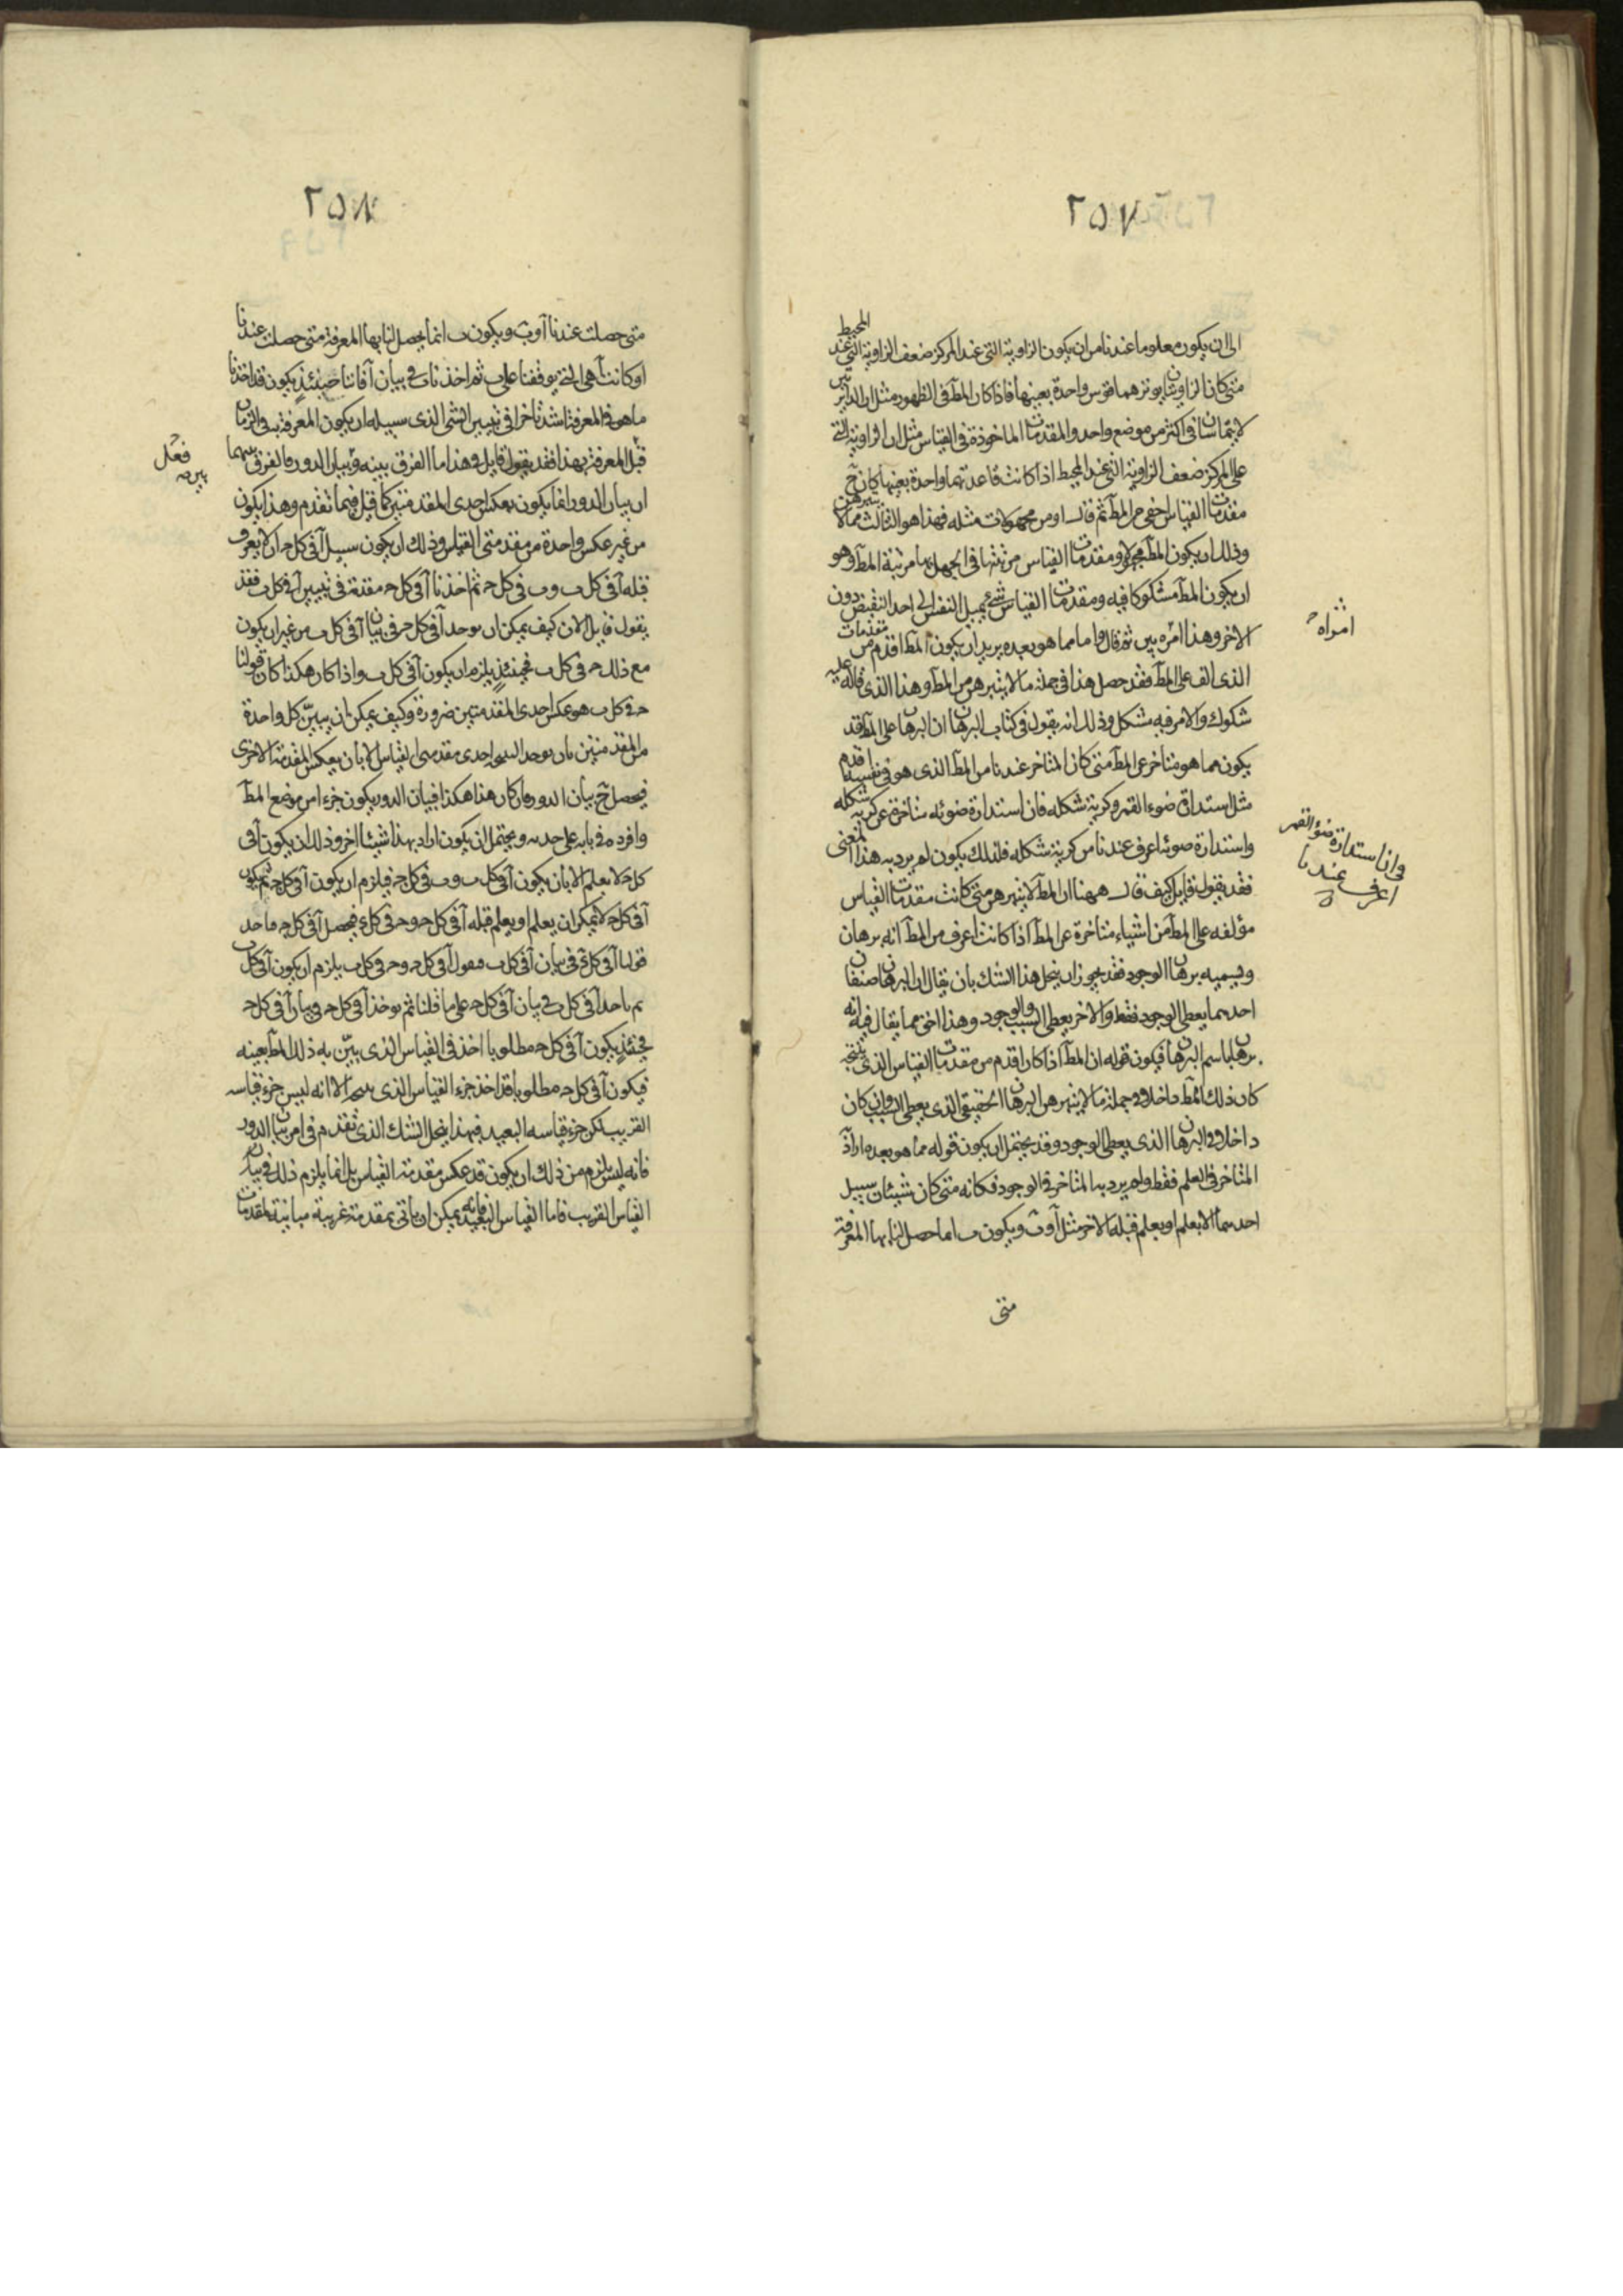 ٢٥٧
الى ان يكون معلوما عندنا من ان يكون الزاوية التى عند المركز ضعف الزاوية التى عند المحيط
متى كان الزاويتان يوترهما قوس واحدة بعينها فاذا كان المطّ فى الظهور مثل ان الدائرتين
لا يتماسان فى اكثر من موضع واحد والمقدمات الماخوذة فى القياس مثل ان الزاوية التى
على المركز ضعف الزاوية التى عند المحيط اذا كانت قاعدتهما واحدة بعينها كان حَ
مقدمات القياس اخفى من المطّ ثم قال او من مجهولات مثله فهذا هو الثالث مما لا يتبرهن
وذلك ان يكون المطّ مجهولا ومقدمات القياس مرتبتها فى الجهل بها مرتبة المطّ وهو
ان يكون المطّ مشكوكا فيه ومقدمات القياس شىء يميل النفس الى احد النقيض دون
الاخر وهذا امره بين ثم قال واما مما هو بعده يريد ان يكون المطّ اقدم من مقدمات
الذى الف على المطّ فقد حصل هذا فى جملة ما لا يتبرهن من المطّ وهذا الذى قاله عليه
شكوك والامر فيه مشكل وذلك انه يقول فى كتاب البرهان ان البرهان على المطّ قد
يكون مما هو متاخر عن المطّ متى كان المتاخر عندنا من المطّ الذى هو فى نفسه اقدم
مثل استدارة ضوء القمر وكرية شكله فان استدارة ضوئه متاخرة عن كرية شكله
واستدارة ضوئه اعرف عندنا من كرية شكله فلذلك يكون لم يرد به هذا المعنى
فقد يقول قايل كيف قال ههنا ان المطّ لا يتبرهن متى كانت مقدمات القياس
مؤلفه على المطّ من اشياء متاخرة عن المطّ اذا كانت اعرف من المطّ انه برهان
ويسميه برهان الوجود فقد يجوز ان ينحل هذا الشك بان يقال ان البرهان صنفان
احدهما يعطى الوجود فقط والاخر يعطى السبب والوجود وهذا احق مما يقال فيه انه
برهان باسم البرهان فيكون قوله ان المطّ اذا كان اقدم من مقدمات القياس الذى ينتجه
كان ذلك المطّ داخلا فى جملة ما لا يتبرهن البرهان الحقيقى الذى يعطى السبب وان كان
داخلا فى البرهان الذى يعطى الوجود وقد يحتمل ان يكون قوله مما هو بعده اراد
المتاخر فى العلم فقط ولم يرد به المتاخر فى الوجود فكانه متى كان شيئان سبيل
احدهما الا يعلم او يعلم قبله الاخر مثل آ وبَ ويكون ب انما حصل لنا بها المعرفة
متى
امراه
فان استدارة ضوء القمر
اعرف عندنا
٢٥٨
متى حصلت عندنا آ وبَ ويكون ب انما يحصل لنا بها المعرفة متى حصلت عندنا
او كانت آ هى التى يوقفنا على ب ثم اخذنا ب فى بيان آ فاننا حينئذ يكون قد اخذنا
ما هو فى المعرفة اشد تاخرا فى تبيين الشى الذى سبيله ان يكون المعرفة به فى الزمان
قبل المعرفة بهذا فقد يقول قايل وهذا ما الفرق بينه وبيان الدور فالفرق بينهما
ان بيان الدور انما يكون بعكس احدى المقدمتين كما قيل فيما تقدم وهذا يكون
من غير عكس واحدة من مقدمتى القياس وذلك ان يكون سبيل آ فى كل حـ ان لا يعرف
قبله آ فى كل ب وب فى كل حـ ثم اخذنا آ فى كل حـ مقدمة فى تبيين آ فى كل ب فقد
يقول قايل الان كيف يمكن ان يوجد آ فى كل حـ فى بيان آ فى كل ب من غير ان يكون
مع ذلك حـ فى كل ب فحينئذ يلزم ان يكون آ فى كل ب واذا كان هكذا كان قولنا
حـ فى كل ب هو عكس احدى المقدمتين ضرورة وكيف يمكن ان يبيّن كل واحدة
من المقدمتين بان يوجد احدى مقدمتى القياس الا بان يعكس المقدمة الاخرى
فيحصل حَ بيان الدور فان كان هذا هكذا فبيان الدور يكون جزء من موضع المطّ
وافرده فى بابه على حدته ويحتمل ان يكون اراد بهذا شيئا اخر وذلك ان يكون آ فى
كل حـ لا يعلم الا بان يكون آ فى كل ب وب فى كل حـ فيلزم ان يكون آ فى كل حـ ثم يكون
آ فى كل حـ لا يمكن ان يعلم او يعلم قبله آ فى كل حـ وحـ فى كل ءَ فيحصل آ فى كل حـ
قولنا آ فى كل ءَ فى بيان آ فى كل ب فنقول آ فى كل حـ وحـ فى كل ب يلزم ان يكون آ فى كل ب
ثم ناخذ آ فى كل ب فى بيان آ فى كل حـ على ما قلنا ثم يوخذ آ فى كل حـ فى بيان آ فى كل حـ
فحينئذ يكون آ فى كل حـ مطلوبا اخذ فى القياس الذى يبيّن به ذلك المطّ بعينه
فيكون آ فى كل حـ مطلوبا قد اخذ جزء القياس الذى الا انه ليس جزء قياسه
القريب لكن جزء قياسه البعيد فبهذا ينحل الشك الذى تقدم فى امر بيان الدور
فانه ليس يلزم من ذلك ان يكون قد عكس مقدمة القياس بل انما يلزم ذلك فى بيان
القياس القريب فاما القياس البعيد فانه يمكن ان ياتى بمقدمة غريبة مباينة لمقدمات
فعل